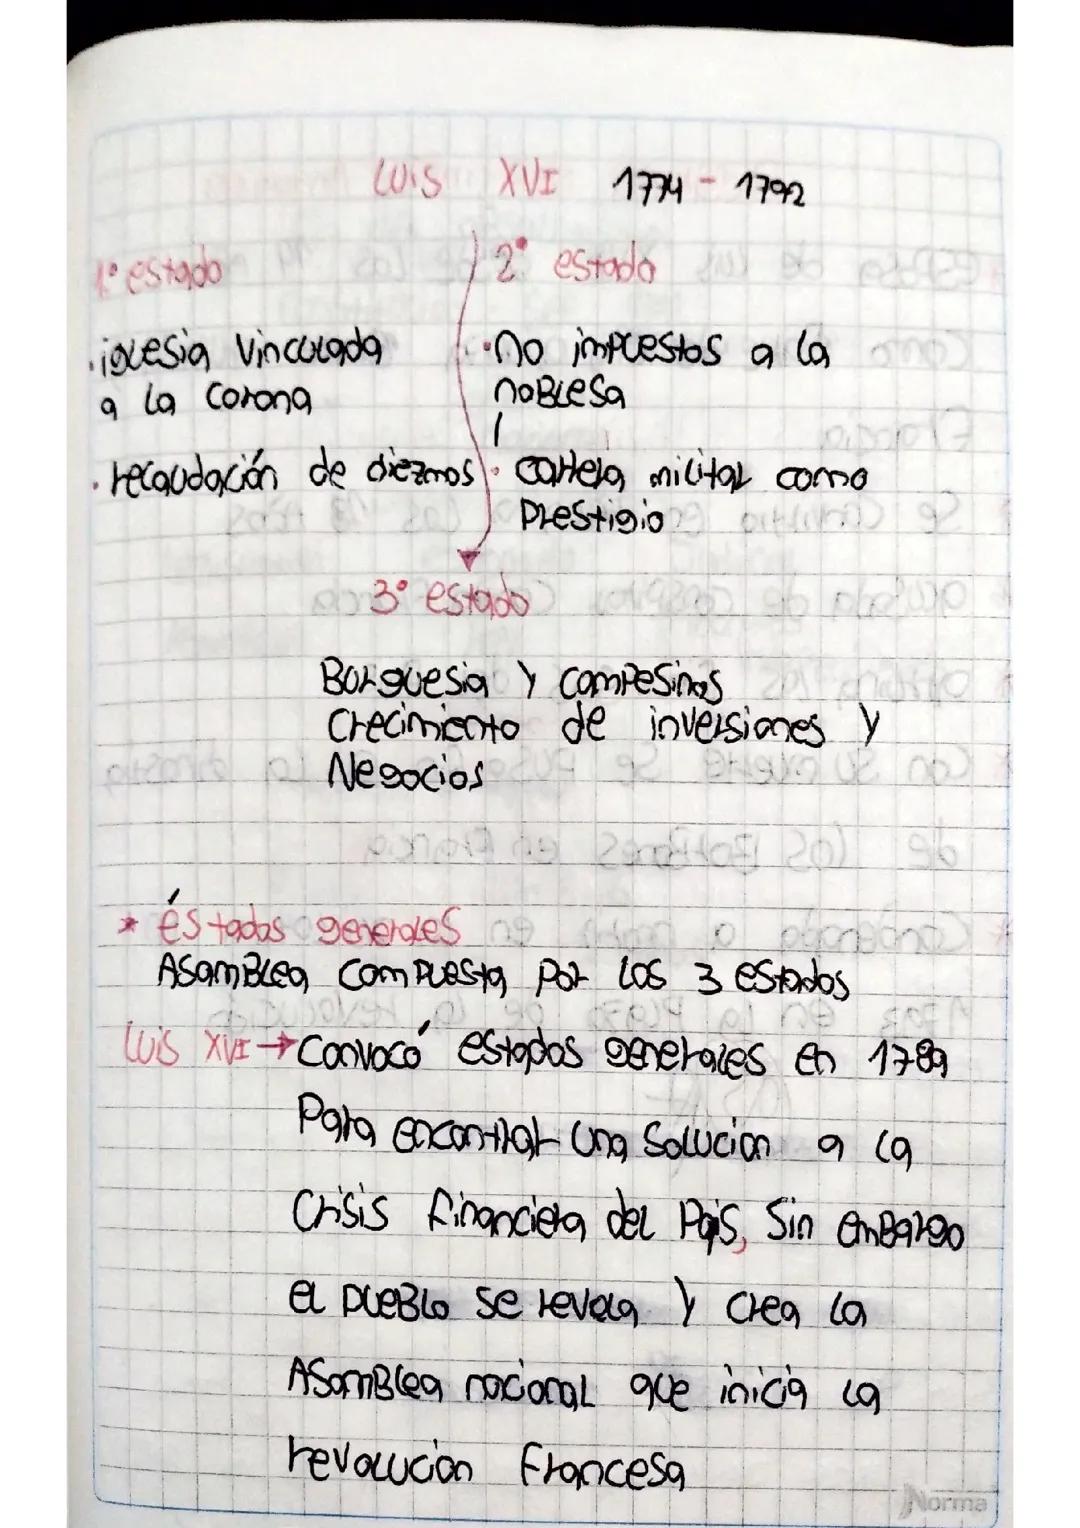 Luis XVI 1774 - 1792
1º estado
2º estado
. iglesia vinculada
a la corona
. recaudación de diezmos
. no impuestos a la
noBlesa
. carrera militar como
Prestigio
3º estado
Burguesia y campesinos
Crecimiento de inversiones y
Negocios
* éstados generales
AsamBlea compuesta por los 3 estados
Luis XVI → Convocó estados generales en 1789
Para encontrar una solucion a la
Crisis financiera del Pais, Sin emBargo
el pueBlo se revela y crea la
AsamBlea nacional que inicia la
revolucion Francesa
Norma